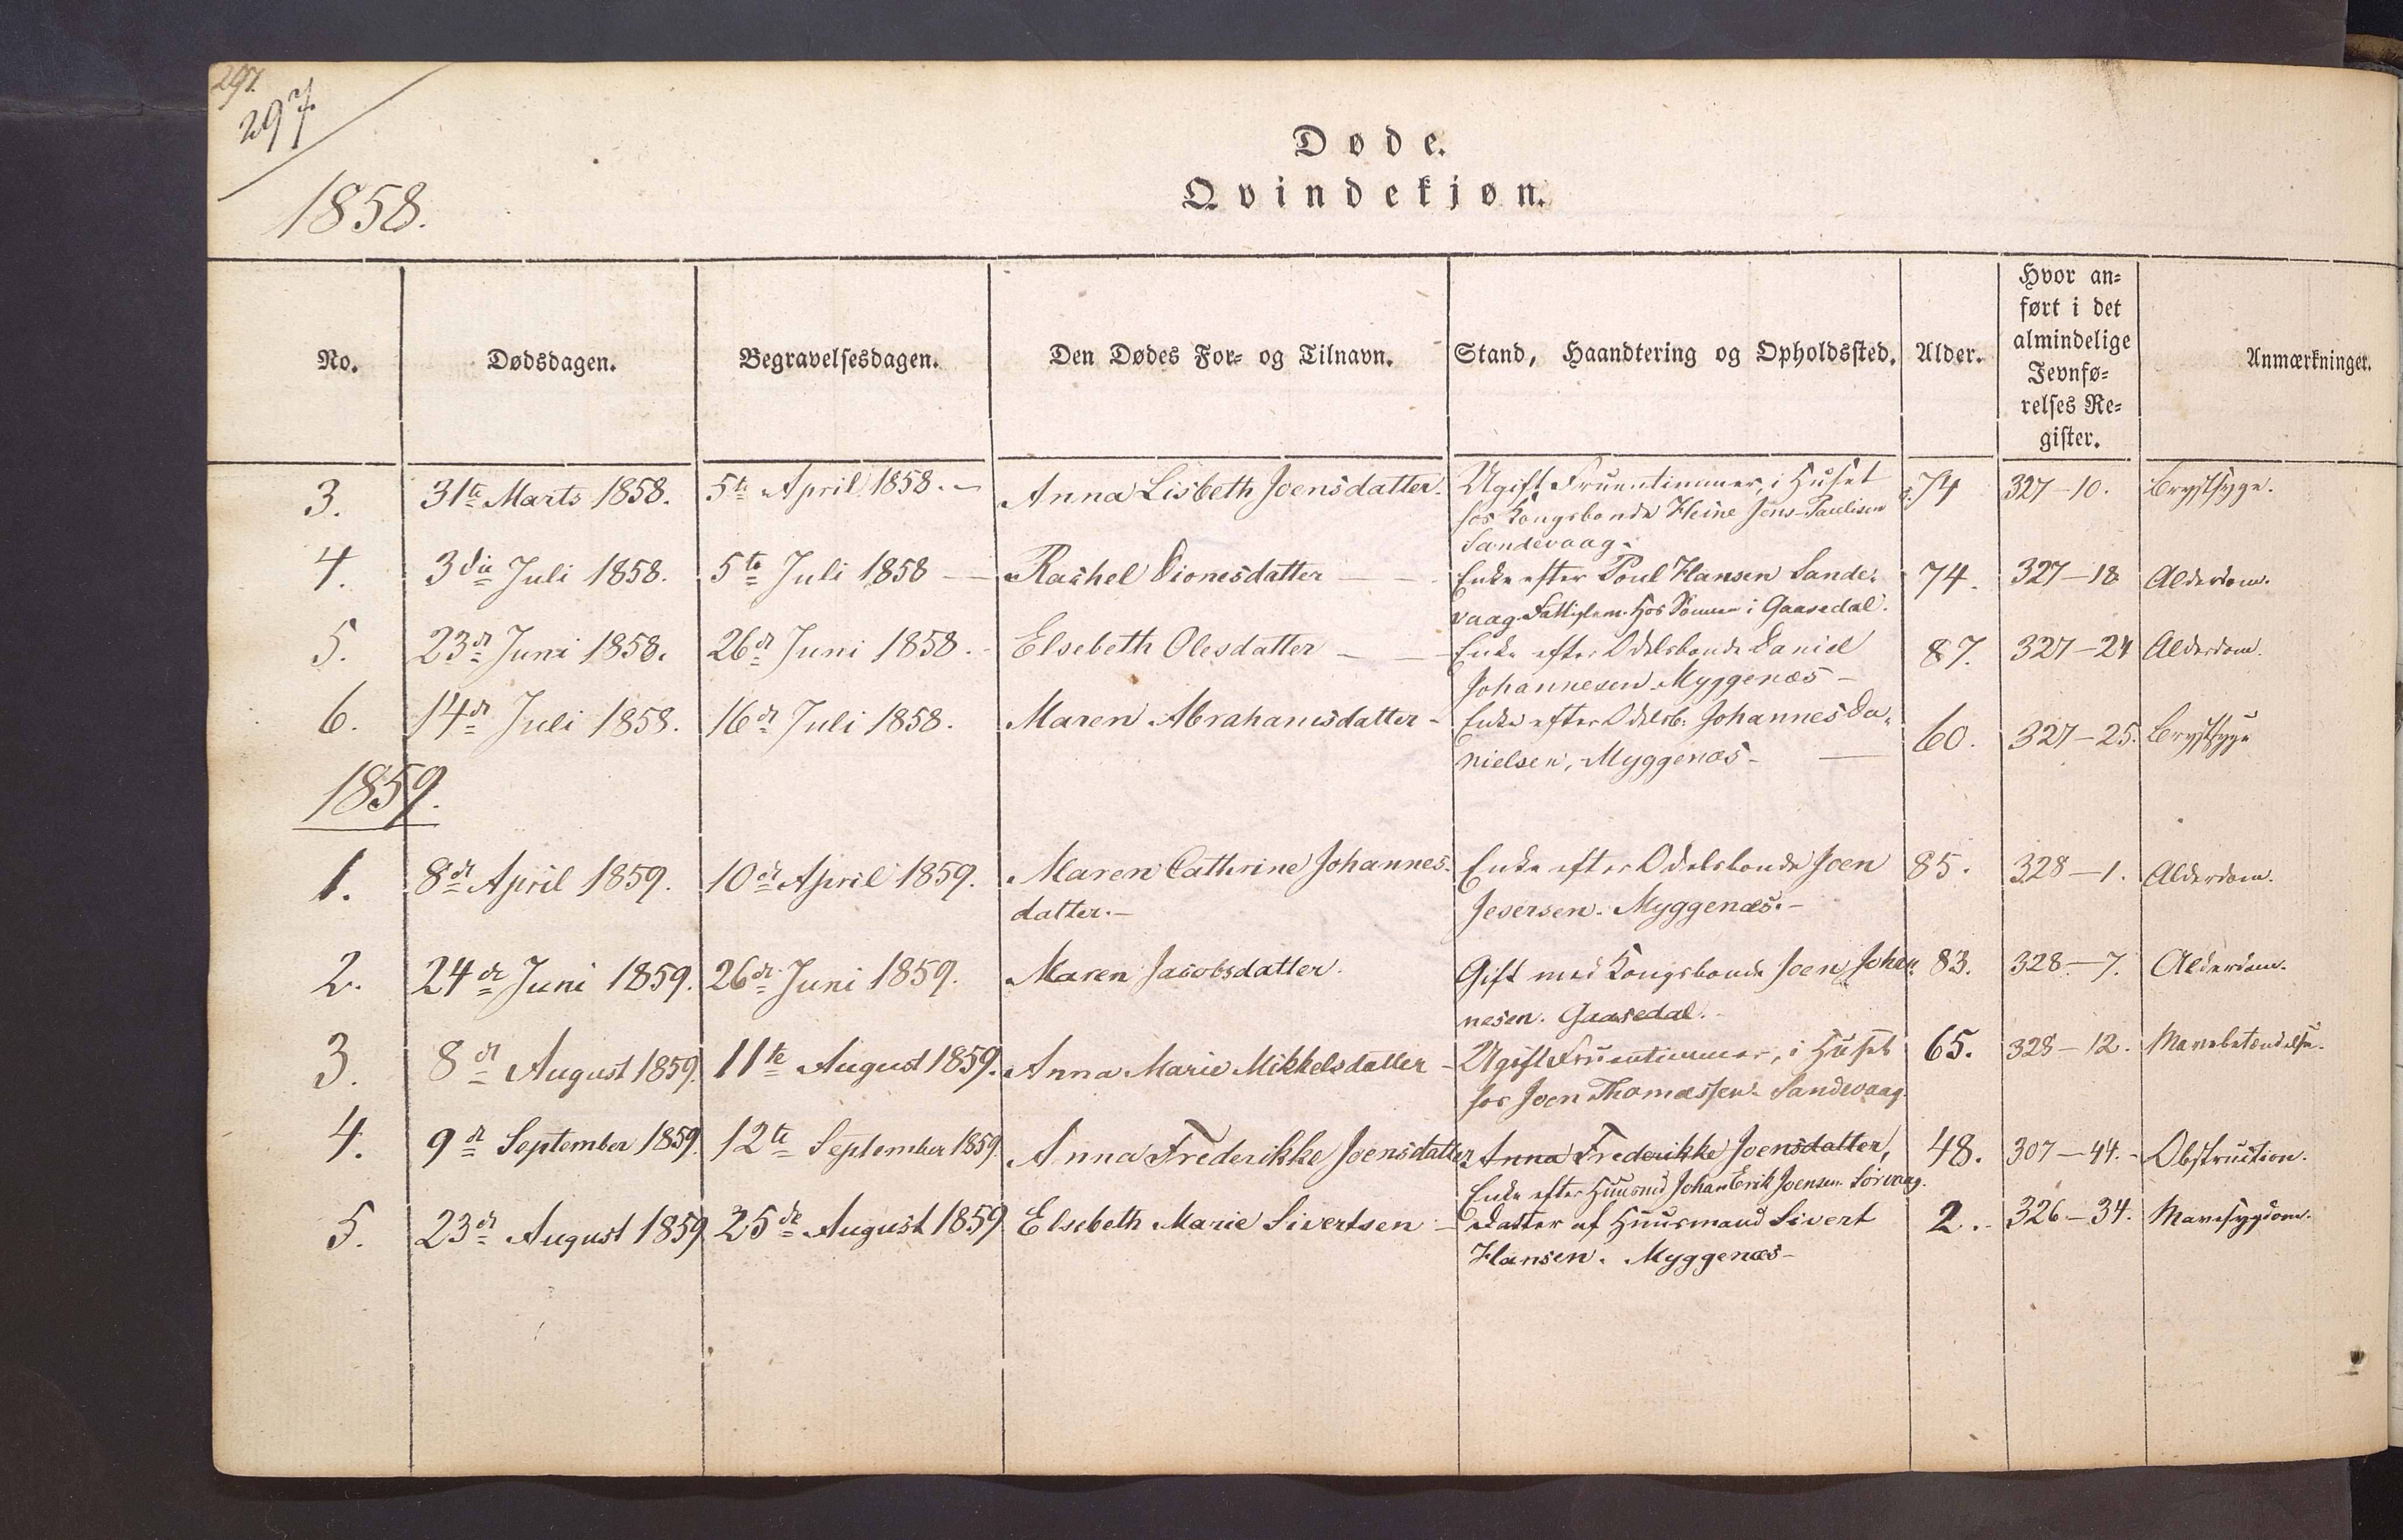 297.
297.
1858.
Døde.
Qvindekjøn.
No.
Dødsdagen.
Begravelsesdagen.
Den Dødes For- og Tilnavn.
Stand, Haandtering og Opholdssted.
Alder.
Hvor an-
ført i det
almindelige
Jevnfø-
relses Re-
gister.
Anmærkninger.
3. 31te Marts 1858. 5te April 1858. – Anna Lisbeth Joensdatter. Ugift Fruentimmer, i Huset 74 327–10. Brystsyge.
hos Kongsbonde Heine Jens Paulisen
Sandevaag.
4. 3die Juli 1858. 5te Juli 1858 – Rachel Dionesdatter – – Enke efter Poul Hansen Sande- 74. 327–18 Alderdom.
vaag. Fattiglem. hos Sønnen i Gaasedal.
5. 23de Juni 1858. 26de Juni 1858. – Elsebeth Olesdatter – – Enke efter Odelsbonde Daniel 87. 327–24 Alderdom.
Johannesen. Myggenæs –
6. 14de Juli 1858. 16de Juli 1858. Maren Abrahamsdatter – Enke efter Odelsb: Johannes Da- 60. 327–25. Brystsyge
nielsen, Myggenæs – —
1859.
1. 8de April 1859. 10de April 1859. Maren Cathrine Johannes- Enke efter Odelsbonde Joen 85. 328–1. Alderdom.
datter. – Jesersen. Myggenæs. –
2. 24de Juni 1859. 26de Juni 1859. Maren Jacobsdatter. Gift med Kongsbonde Joen Johan- 83. 328–7. Alderdom.
nesen. Gaasedal. –
3. 8de August 1859. 11te August 1859. Anna Marie Mikkelsdatter – Ugift Fruentimmer, i Huset 65. 328–12. Mavebetændelse.
hos Joen Thomassen. Sandevaag.
4. 9de September 1859. 12te September 1859. Anna Frederikke Joensdatter Anna Frederikke Joensdatter, 48. 307–44. – Obstruction.
Enke efter Huusmd Johan Erik Joensen Sørvaag.
5. 23de August 1859 25de August 1859 Elsebeth Marie Sivertsen – Datter af Huusmand Sivert 2. – 326–34. Mavesygdom.
Hansen. Myggenæs –